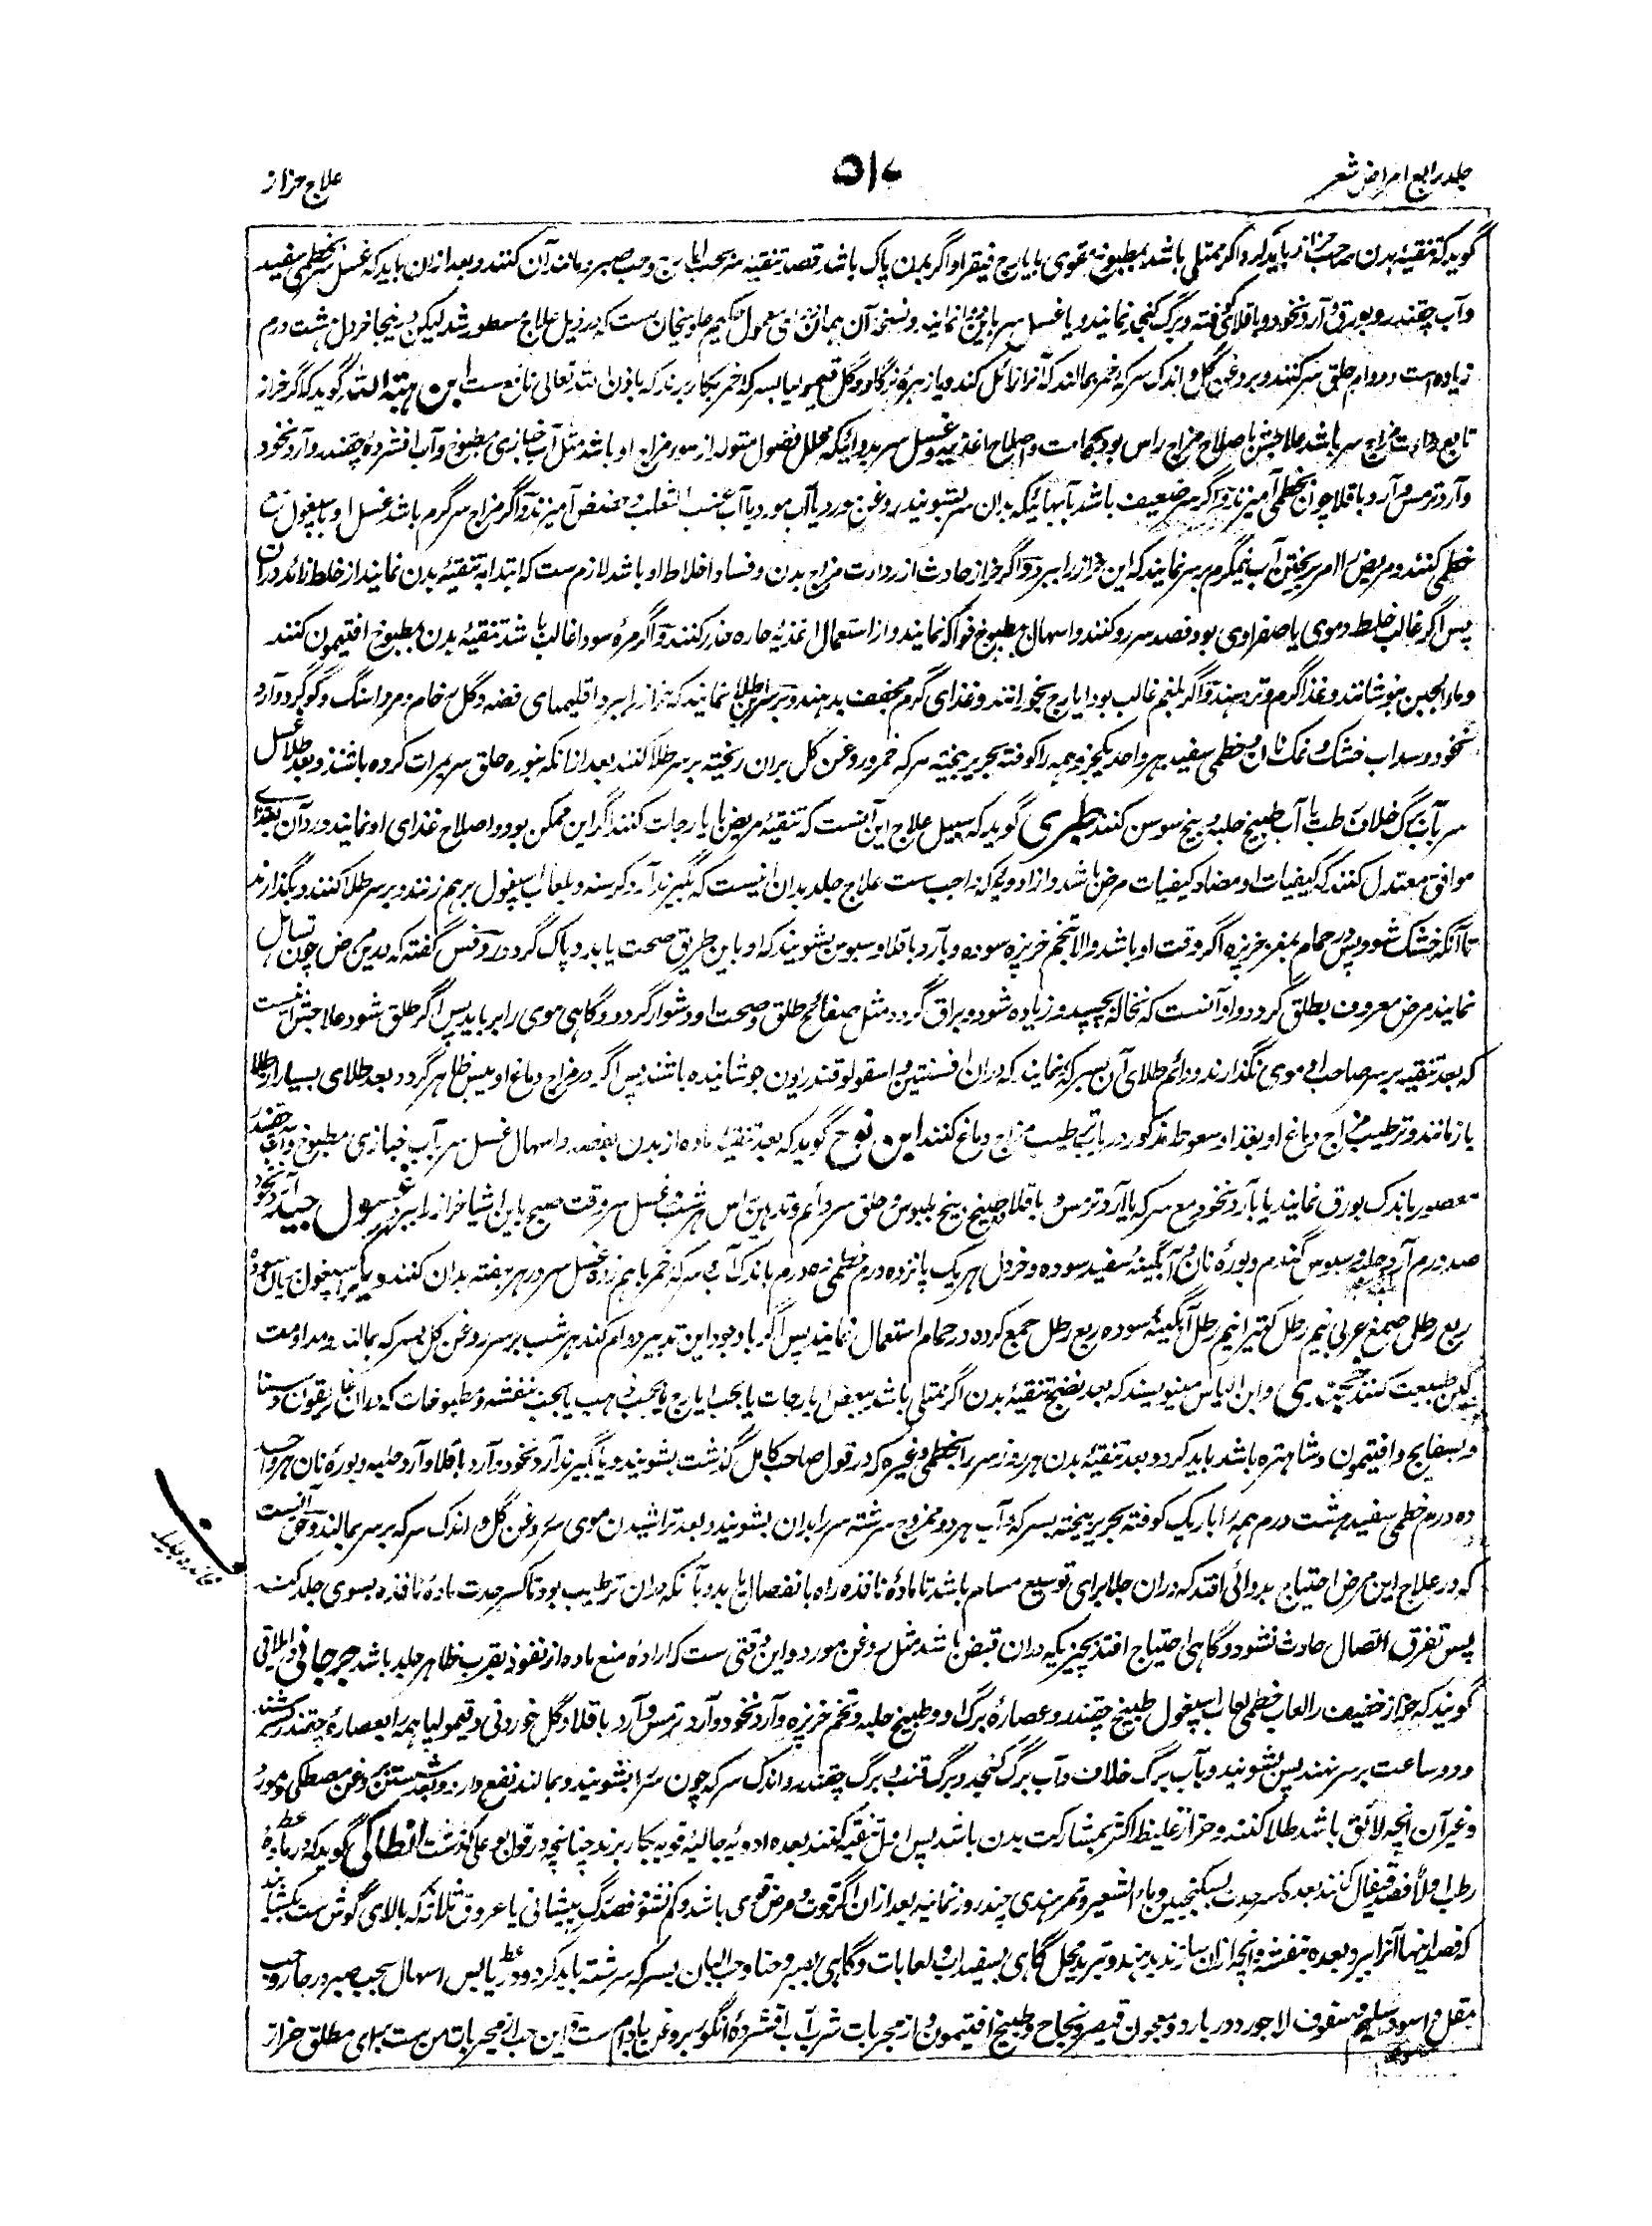 جلد رابع امراض شعر
۵۱۰
علاج حزاز
گوید که تنقیهٔ بدن صاحب حزاز باید کرد اگر ممتلی باشد بمطبوخ مقوی بایارج فیقرا و اگر بدن پاک باشد قصد تنقیهٔ سر بحب ایارج و حب صبر و مانند آن کنند و بعد ازان باید که غسل سر بخطمی سفید
و آب چقندر و بورق و آرد نخود و باقلای کوفته و برگ کنجد نمایند و یا غسل سر باین نمایند و نسخهٔ آن همان معمول حکیم علویخان ست که در ذیل علاج مسطور شد لیکن درینجا خردل هشت درم
زیاده است و دوام حلق سر کنند و بروغن گل و اندک سرکهٔ خمر بمالند که آنرا زائل کند و یا زهرهٔ نرگاو و گل قیمولیا بسرکهٔ خمر بکار برند که باذن الله تعالی نافع ست ابن هبة الله گوید که اگر حزاز
تابع ردارت مزاج سر باشد علاجش باصلاح مزاج راس بود بحجامت و اصلاح اغذیه و غسل سر بدوائیکه محلل فضول متولد از سوء مزاج او باشد مثل آب خبازی مطبوخ و آب افشردهٔ چقندر و آرد نخود
و آرد ترمس و آرد باقلا چون بخطمی آمیزند و اگر سر ضعیف باشد بآبهائیکه بدان سر بشویند روغن مورد یا آب مورد یا آب عنب الثعلب بعض آمیزند و اگر مزاج سر گرم باشد غسل او بسپغول و
خطمی کنند و مریض را امر بریختن آب نیمگرم بر سر نمایند که این حزاز را ببرد و اگر حزاز حادث از ردارت مزاج بدن و فساد اخلاط او باشد لازم ست که ابتدا به تنقیهٔ بدن نمایند از خلط زائد دران
پس اگر غالب خلط دموی یا صفراوی بود فصد سررو کنند و اسهال بمطبوخ فواکه نمایند و از استعمال اغذیهٔ حاره حذر کنند و اگر مرهٔ سودا غالب باشد تنقیهٔ بدن بمطبوخ افتیمون کنند
و ماء الجبن بنوشانند و غذا گرم و تر دهند و اگر بلغم غالب بود ایارج بخورانند و غذای گرم مجفف بدهند و بر سر این طلا نمایند که حزاز را ببرد اقلیمیای فضه و گل سرخ خام و مرداسنگ و گوگرد و آرد
نخود و سداب خشک و نمک نان و خطمی سفید هر واحد یکجزو همه را کوفته بحریر بیخته سرکهٔ خمر و روغن گل بران ریخته بر سر طلا کنند بعد ازانکه بنوره حلق سر بمرات کرده باشند و بعد طلا غسل
سر بآب برگ خلاف رطب یا آب طبیخ حلبه و بیخ سوسن کنند طبری گوید که سبیل علاج این آنست که تنقیهٔ مریض بایارجات کنند اگر این ممکن بود و اصلاح غذای او نمایند و بران بغذای
موافق معتدل کنند که کیفیات او مضاد کیفیات مرض باشد و از ادویه که واجب ست علاج جلد بدان اینست که بگیرند آرد کرسنه و بلعاب اسپغول بر هم زنند و بر سر طلا کنند و بگذارند
تا آنکه خشک شود پس در حمام بمغز خربزه اگر وقت او باشد والا بتخم خربزه سوده و بآرد باقلا و سبوس بشویند که او باین طریق صحت یابد و پاک گردد روفس گفته که درین مرض چون تساهل
نمایند مرض معروف بطلق گردد و او آنست که نخاله بچسپد و زیاده شود و براق گردد مثل صفائح طلق و صحت او دشوار گردد و گاهی موی را برباید پس اگر طلق شود علاجش اینست
که بعد تنقیه بر سر صاحب او موی نگذارند و دائم طلای آن بسرکه نمایند که دران افسنتین و اسقولوقندریون جوشانیده باشند پس اگر در مزاج دماغ او یبس ظاهر گردد بعد طلای بسیار از طلا
باز مانند و ترطیب مزاج دماغ او بغذا و سعوط مذکور در باب ترطیب مزاج دماغ کنند ابن نوح گوید که بعد تنقیهٔ ماده از بدن بفصد و اسهال غسل سر بآب خبازی مطبوخ و آب چقندر
معصور باندک بورق نمایند یا بآرد نخود مع سرکه یا آرد ترمس و باقلا و طبیخ بیخ بلبوس و حلق سر دائم و تدهین راس هر شب و غسل سر وقت صبح باین اشیا حزاز را ببرد غسول جید آرد نخود
صد درم آرد حلبه و سبوس گندم و بورهٔ نان و آبگینهٔ سفید سوده و خردل هر یک پانزده درم خطمی ده درم باندک آب و سرکهٔ خمر باهم زده غسل سر در هر هفته بدان کنند دیگر اسپغول بریان سوده
ربع رطل صمغ عربی نیم رطل کتیرا نیم رطل آبگینهٔ سوده ربع رطل جمع کرده در حمام استعمال نمایند پس اگر با وجود این تدبیر دوام کند هر شب بر سر روغن گل بسرکه بمالند و مداومت
تلیین طبیعت کنند خجندی و ابن الیاس مینویسند که بعد نضج تنقیهٔ بدن اگر ممتلی باشد ببعض ایارجات یا بحب ایارج یا بحب ذهب یا بحب بنفشه و مطبوخات که دران غاریقون و سنا
و بسفایج و افتیمون و شاهتره باشد باید کرد و بعد تنقیهٔ بدن هر روز سر را بخطمی و غیره که در قول صاحب کامل گذشت بشویند و یا بگیرند آرد نخود و آرد باقلا و آرد حلبه و بورهٔ نان هر واحد
ده درم خطمی سفید هشت درم همه را باریک کوفته بحریر بیخته بسرکه و آب هر دو ممزوج سرشته سر را بدان بشویند و بعد تراشیدن موی سر روغن گل و اندک سرکه بر سر بمالند و حق آنست
که در علاج این مرض احتیاج بدوائی افتد که دران جلا برای توسیع مسام باشد تا مادهٔ نافذه راه بانفصال یابد و بآنکه دران ترطیب بود تا کسر حدت مادهٔ نافذه بسوی جلد کند
پس تفرق اتصال حادث نشود و گاهی احتیاج افتد بچیزیکه دران قبض باشد مثل روغن مورد و این وقتی ست که ارادهٔ منع ماده از نفوذ بقرب ظاهر جلد باشد جرجانی و ایلاقی
گویند که حزاز خفیف را لعاب خطمی و لعاب اسپغول و طبیخ چقندر و عصارهٔ برگ او و طبیخ حلبه و تخم خربزه و آرد نخود و آرد ترمس و آرد باقلا و گل خوردنی و قیمولیا همه را بعصارهٔ چقندر سرشته
و دو ساعت بر سر نهند پس بشویند و بآب برگ خلاف و آب برگ کنجد و برگ قنب و برگ چقندر و اندک سرکه چون سر را بشویند و بمالند نفع دارد و بعد شستن سر روغن مصطکی و مورد
و غیر آن انچه لائق باشد طلا کنند و حزاز غلیظ اکثر بمشارکت بدن باشد پس اول تنقیه کنند بعده ادویهٔ جالیهٔ قویه بکار برند چنانچه در قول بوعلی گذشت انطاکی گوید که در مادهٔ
رطب اولاً فصد قیفال کنند بعده کسر حدت بسکنجبین و ماء الشعیر و تمر هندی چند روز نمایند بعد ازان اگر قوت و مرض قوی باشد و کم نشود فصد رگ پیشانی یا عروق ثلاثه که بالای گوش ست بکشایند
که فصد اینها آنرا ببرد و بعده بنفشه و انچه ازان سازند بدهند و تبرید محل گاهی بسفیداب و لعابات و گاهی بصبر و حنا و حب البان بسرکه سرشته باید کرد و در یابس اسهال بحب صبر و در حار و حب
مقل و اسود سلیم و سفوف لاجورد در بارد و معجون قیصر و نجاح و طبیخ افتیمون و از مجربات شرب آب افشردهٔ انگور بروغن بادام ست و این حب از مجربات من ست برای مطلق حزاز